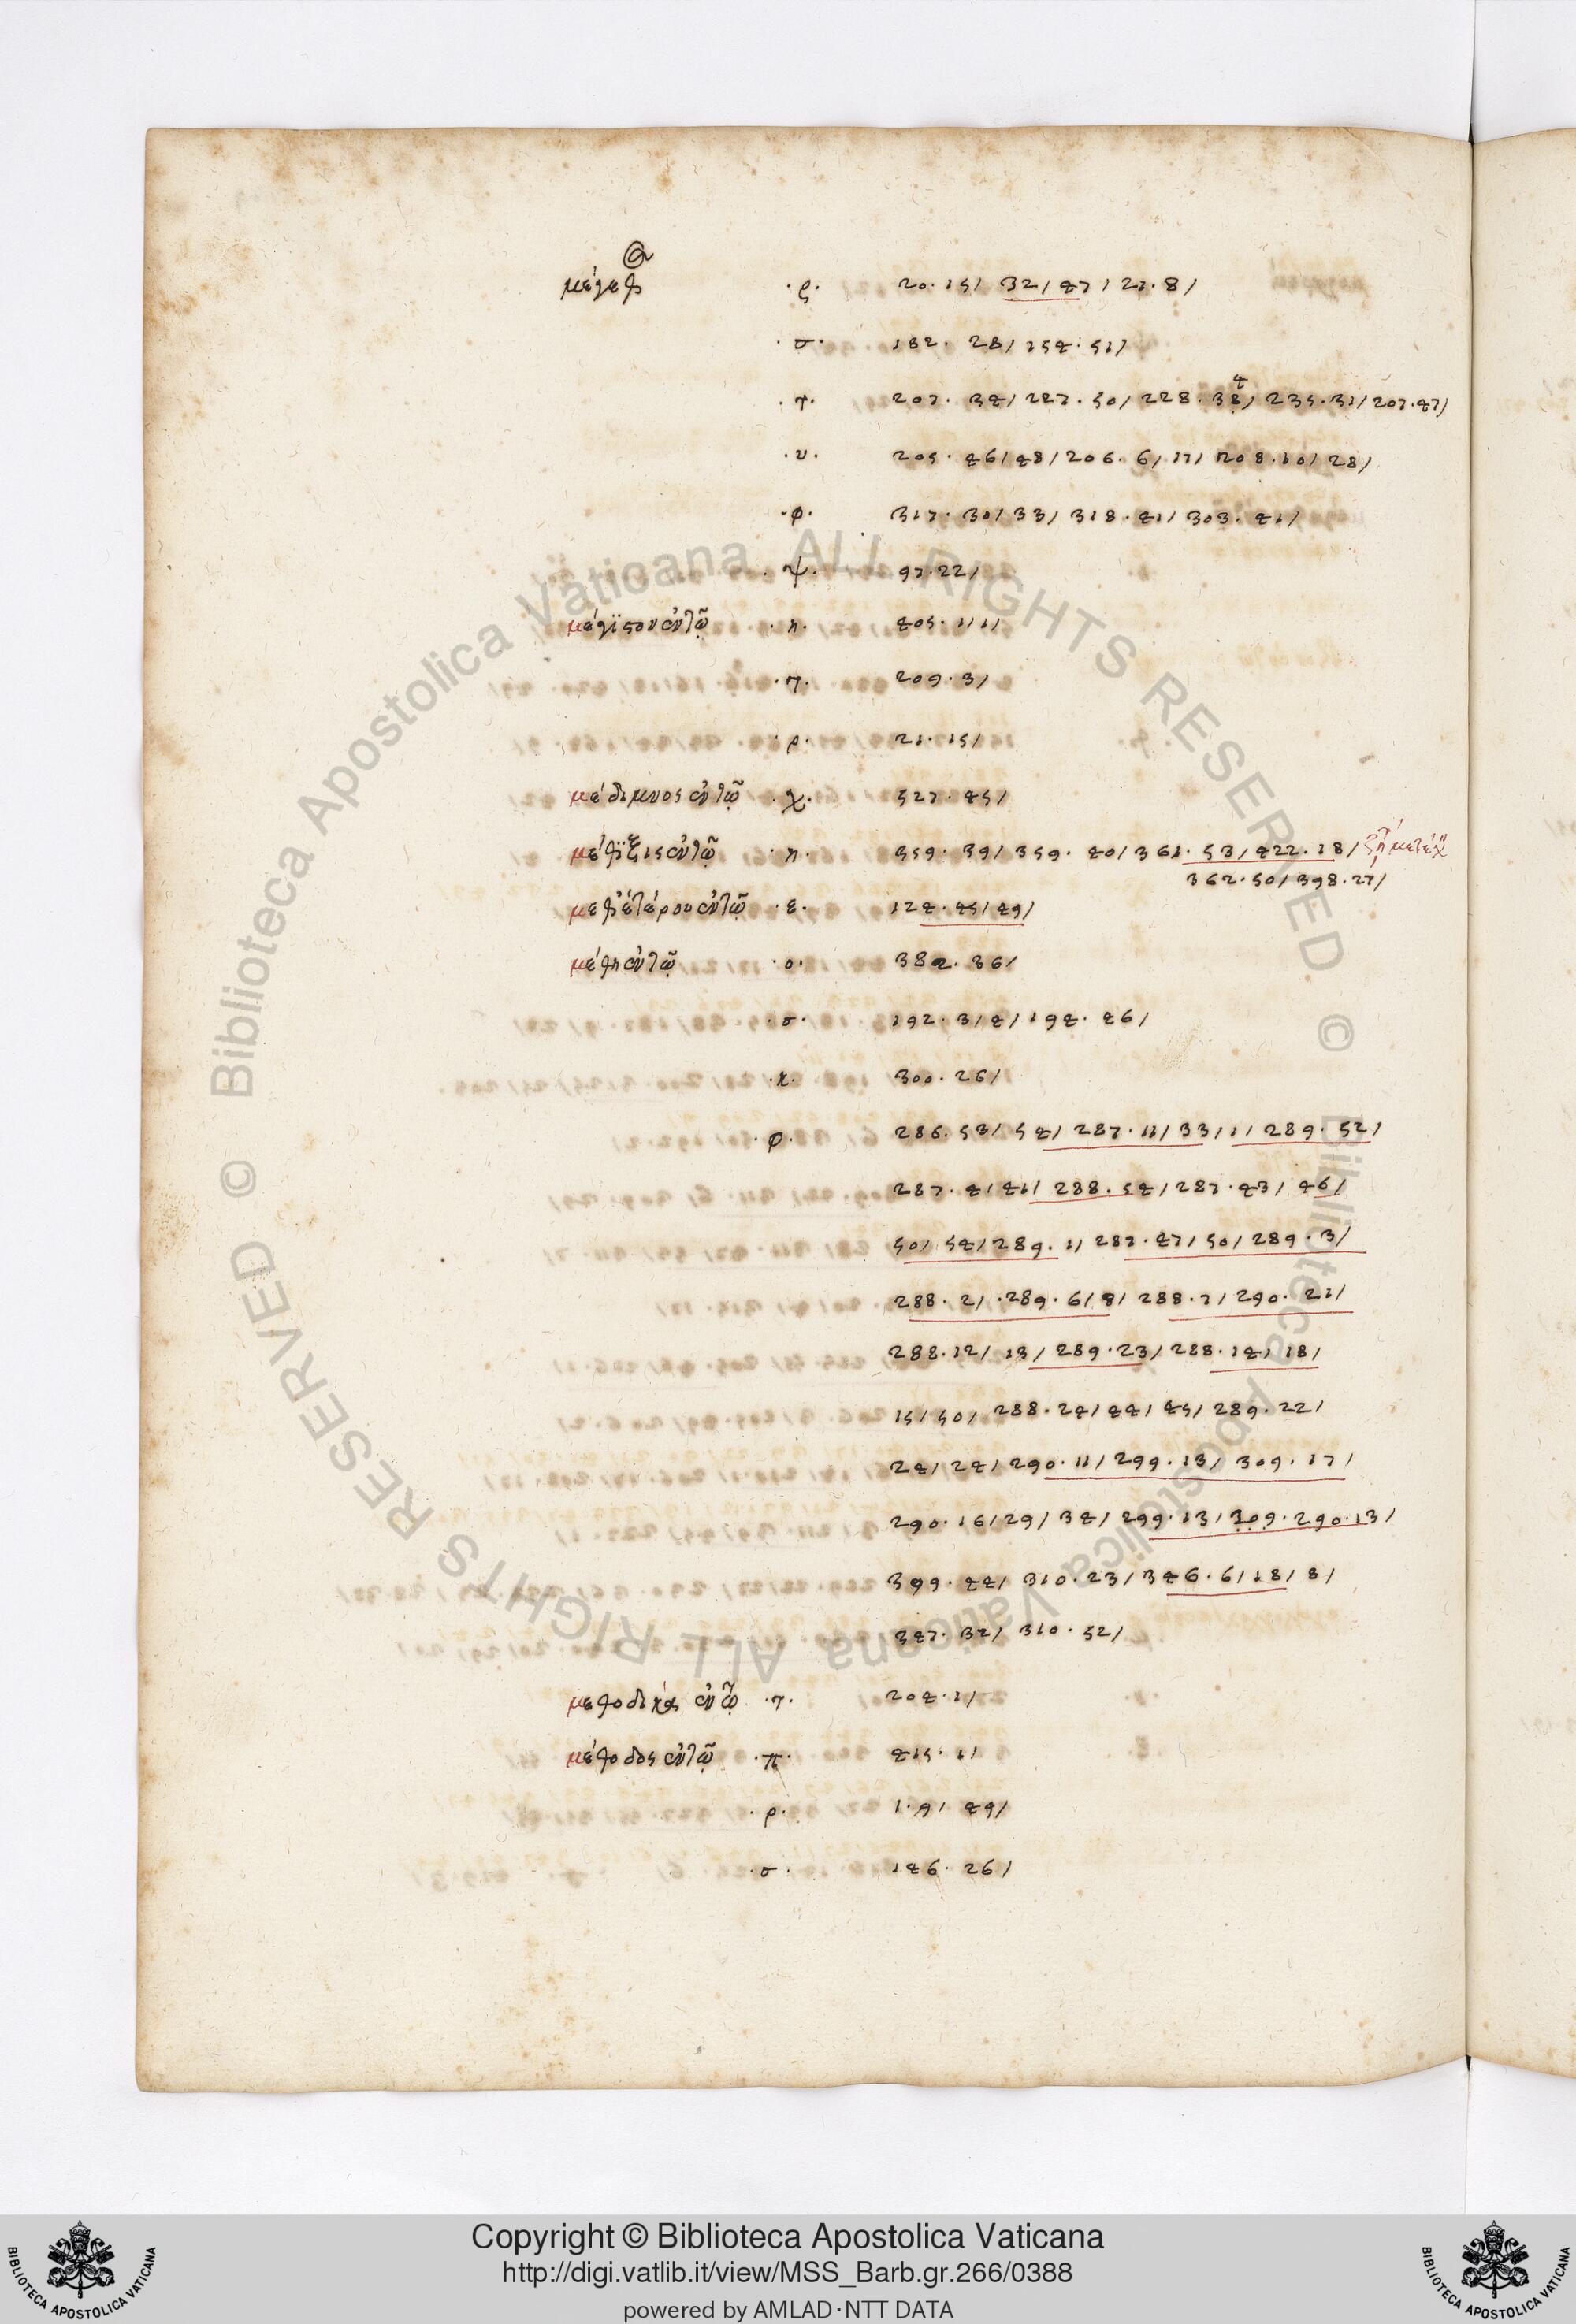 μέγεθ
.ρ. 20.15/ 32/ 47/ 21.8/
.σ. 182. 28/ 154. 51/
.τ. 207. 34/ 227.50/ 228.38/ 235.31/ 207.47/
4
.υ. 205. 46/ 48/ 206. 6/ 17/ 208.10/ 28/
.φ. 317. 30/ 33/ 318. 41/ 303. 41/
.ψ. 97.22/
μέγϊστον ἐν τῷ .η. 405. 11/
.τ. 209. 3/
.ρ. 21. 15/
μέδιμνος ἐν τῷ .χ. 527. 45/
μέθϊξις ἐν τῷ .η. 359. 39/ 359. 40/ 361. 53/ 422. 18/
362.50/ 398.27/
μεθ' ἑτέρου ἐν τῷ .ε. 124. 45/ 49/
μέθη ἐν τῷ .ο. 382. 36/
.σ. 192. 3/ 4/ 194. 46/
.κ. 300. 26/
.φ. 286. 53/ 54/ 287. 11/ 33/ 1/ 289. 52/
287. 4/ 41/ 288. 54/ 287. 43/ 46/
50/ 54/ 289. 1/ 287. 47/ 50/ 289. 3/
288. 2/ .289. 6/ 8/ 288. 7/ 290. 21/
288.12/ 13/ 289.23/ 288.14/ 18/
15/ 50/ 288.24/ 44/ 45/ 289.22/
24/ 24/ 290.11/ 299.13/ 309. 17/
290.16/ 29/ 34/ 299.13/ 309.290.13/
399. 44/ 310. 23/ 346. 6/ 18/ 8/
347. 32/ 310. 52/
μεθοδικὰ ἐν τῷ .τ. 204.1/
μέθοδος ἐν τῷ .π. 415. 11
.ρ. 1.9/ 49/
.σ. 146. 26/
Copyright © Biblioteca Apostolica Vaticana
http://digi.vatlib.it/view/MSS_Barb.gr.266/0388
powered by AMLAD·NTT DATA
BIBLIOTECA APOSTOLICA VATICANA
BIBLIOTECA APOSTOLICA VATICANA
© Biblioteca Apostolica Vaticana ALL RIGHTS RESERVED
© Biblioteca Apostolica Vaticana ALL RIGHTS RESERVED